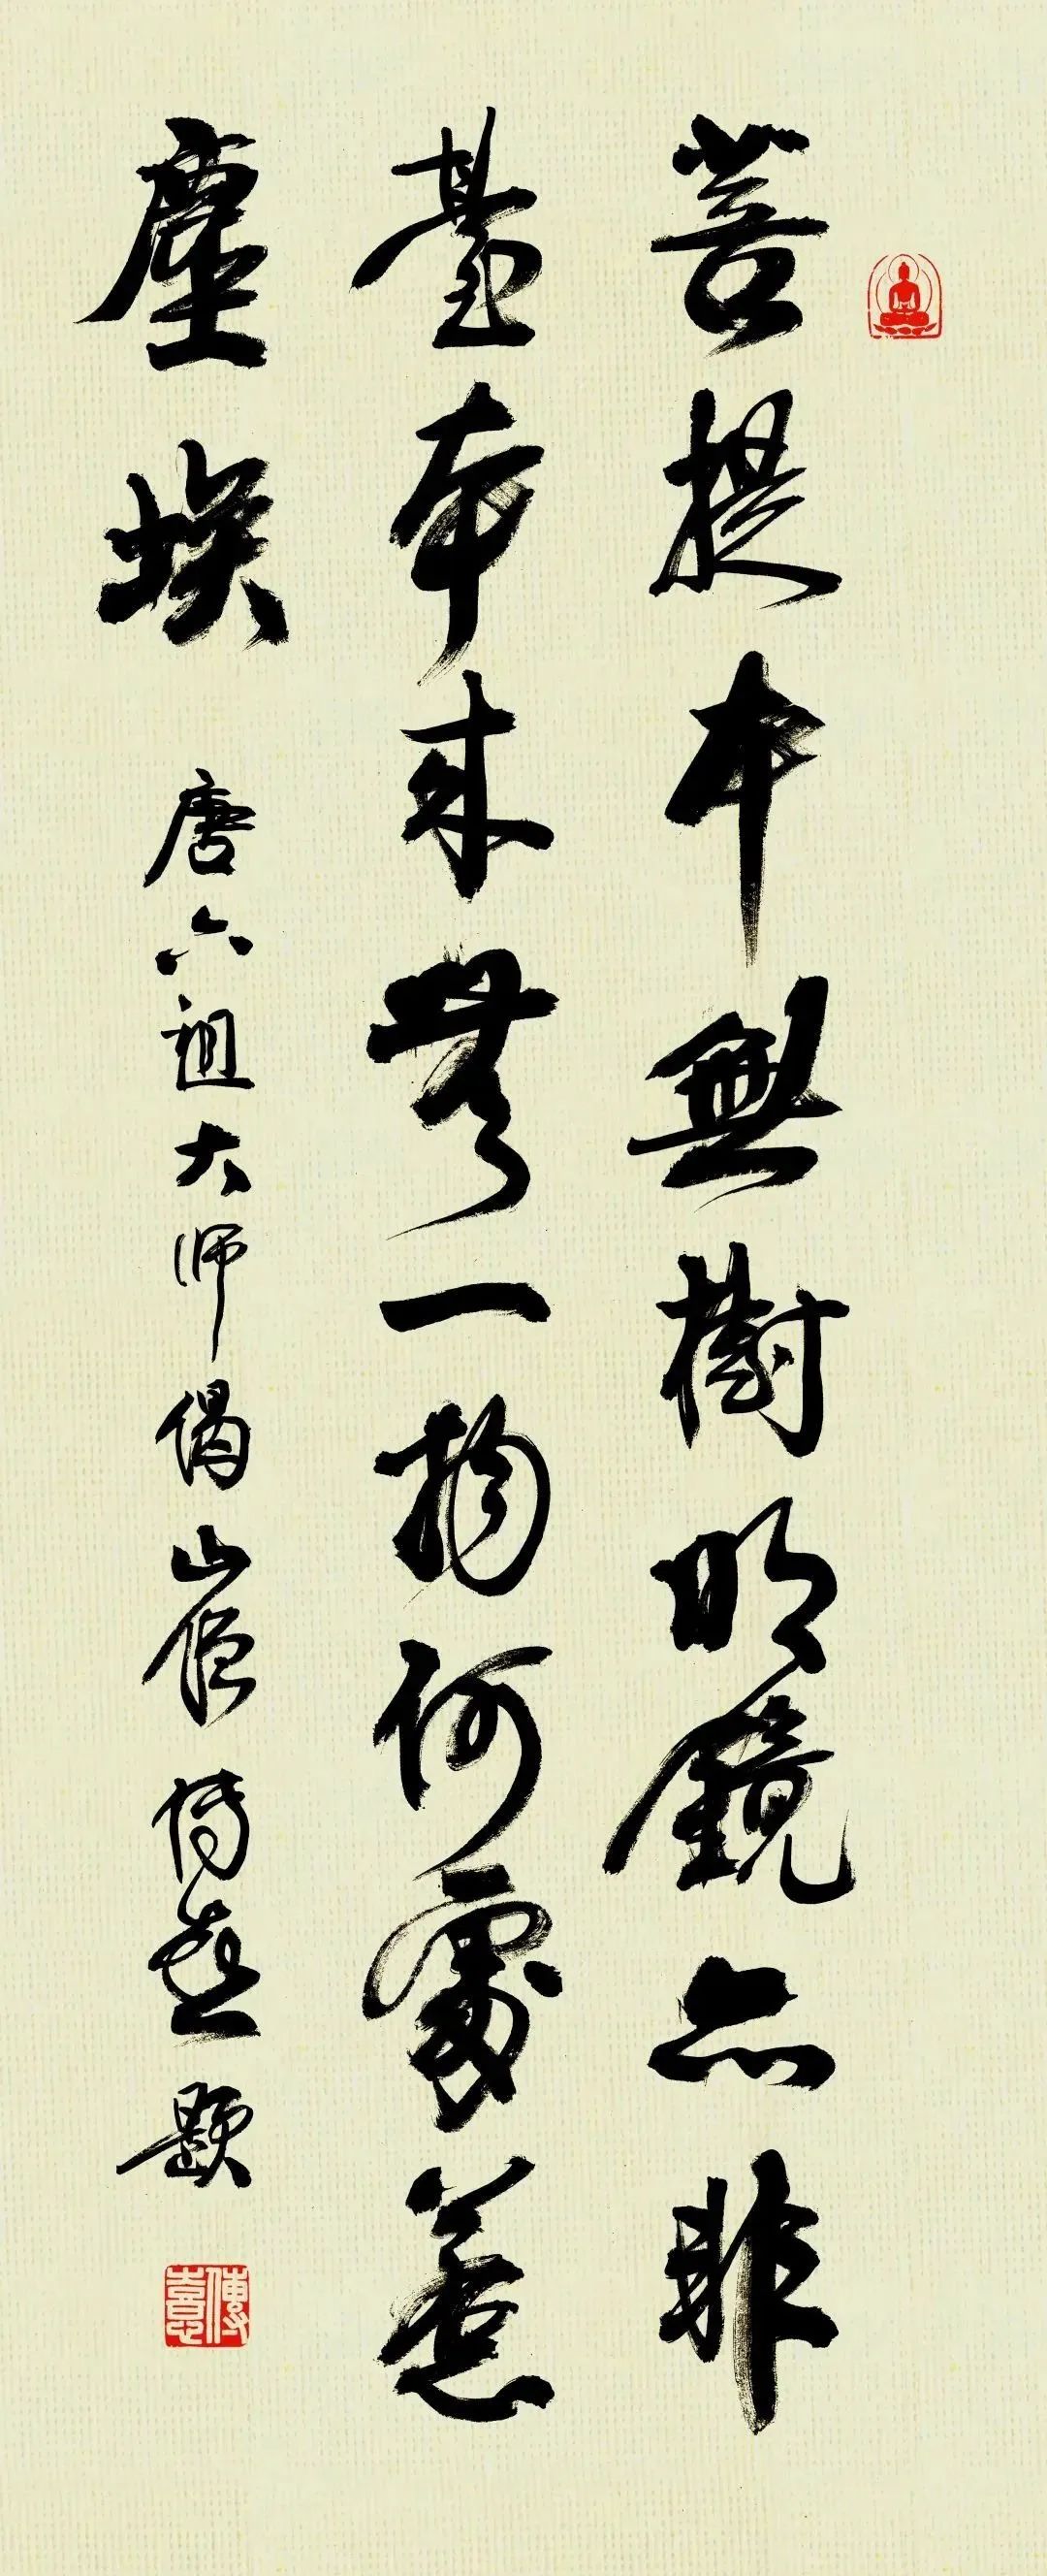 菩提本無樹明鏡亦非
臺本來無一物何處惹
塵埃 唐六祖大师偈山僧传喜題
傳憙